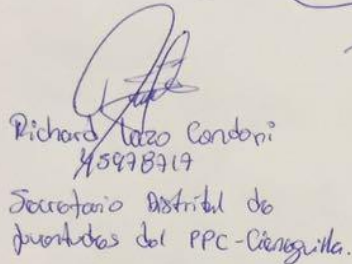 Richard Lazo Condori
45978717
Secretario Distrital de
Juventudes del PPC-Cieneguilla.